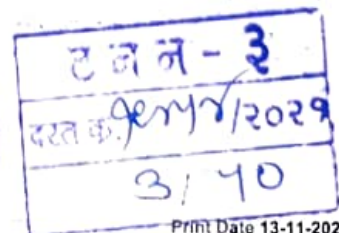 ट न न - ३
दस्त क्र. /२०२१
३/ ५०
Print Date 13-11-202